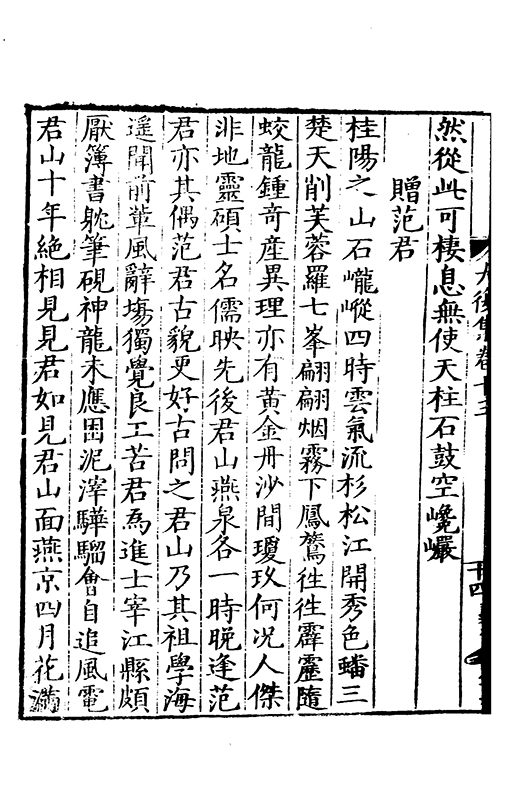 然從此可棲息無使天柱石鼓空巉巖
大復集卷十
十四
贈范君
桂陽之山石巃嵸四時雲氣流杉松江開秀色蟠三
楚天削芙蓉羅七峯翩翩烟霧下鳳徃徃霹靂隨
蛟龍鍾奇産異理亦有黃金丹沙間瓊玖何况人傑
非地靈碩士名儒映先後君山燕泉各一時晚逢范
君亦其偶范君古貌更好古問之君山乃其祖學海
遥聞前軰風辭塲獨覺良工苦君為進士宰江縣頗
厭簿書躭筆硯神龍未應困泥滓驊騮會自追風電
君山十年絶相見見君如見君山面燕京四月花滿